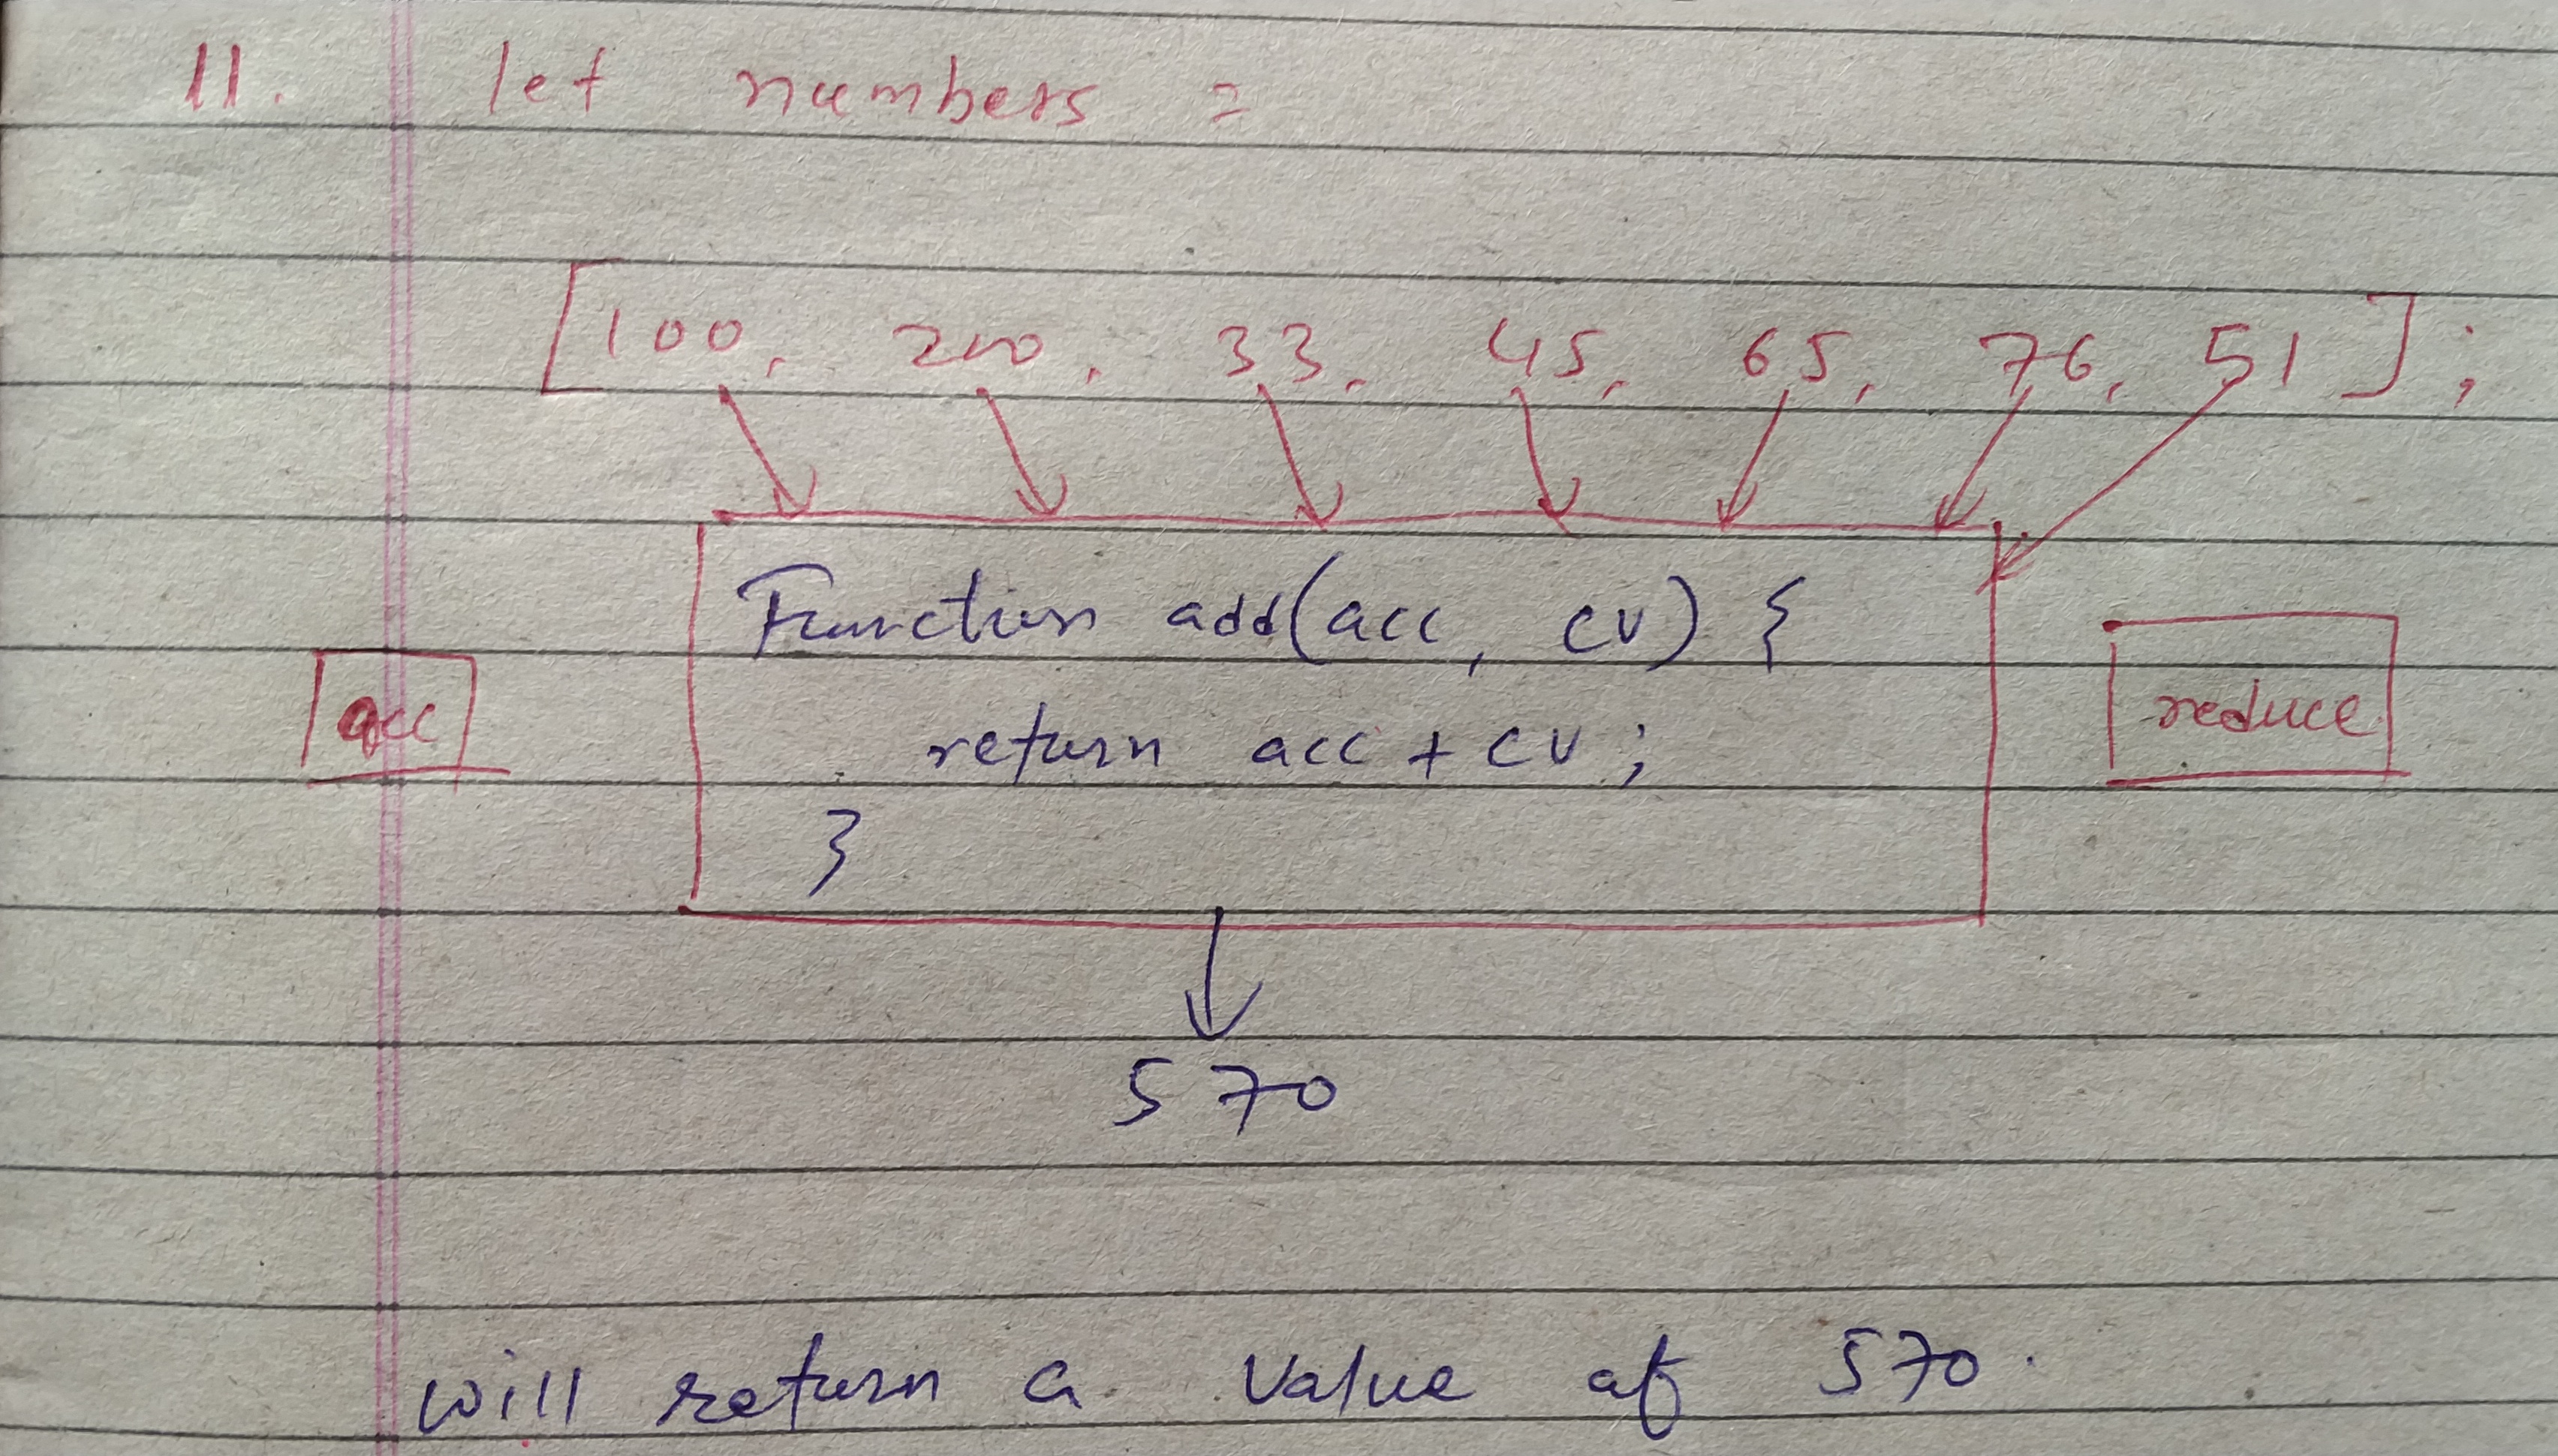 11. let numbers =
[100, 200, 33, 45, 65, 76, 51];
Function add(acc, cv) {
acc
return acc + cv;
reduce
}
570
will return a value of 570.